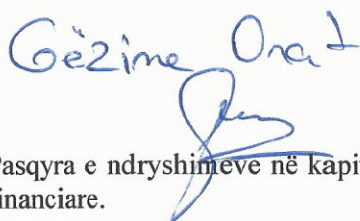 Gëzime
Pasqyra e ndryshimeve në kapi
inanciare.